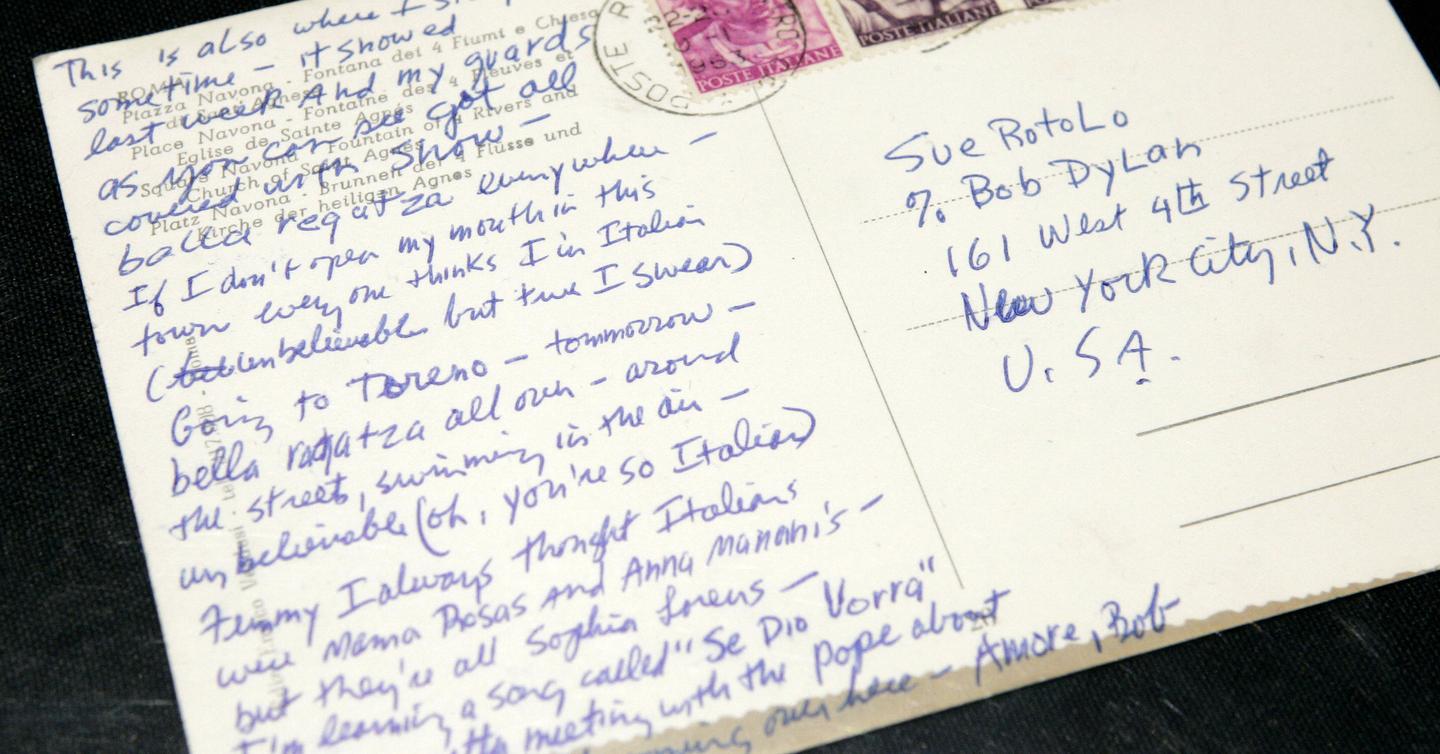 This is also where I
sometime - it showed
last week And my guards
as you can see got all
covered with Show -
bella regatza everywhere -
If I don't open my mouth in this
town everyone thinks I'm Italian
(unbelievable but true I swear)
Going to Toreno - tommorrow -
bella ragatza all over - around
the street, swimming in the air -
unbelievable (oh, you're so Italian)
Funny I always thought Italians
were Mama Rosas And Anna Mananni's -
but they're all Sophia Lorens -
I'm learning a song called "Se Dio Vorra"
meeting with the pope about
over here - Amore, Bob
ROMA
Piazza Navona - Fontana dei 4 Fiumi e Chiesa
di Sant'Agnese
Place Navona - Fontaine des 4 Fleuves et
Eglise de Sainte Agnès
Square Navona - Fountain of 4 Rivers and
Church of Saint Agnes
Platz Navona - Brunnen der 4 Flüsse und
Kirche der heiligen Agnes
POSTE
POSTE ITALIANE
POSTE ITALIANE
Sue Rotolo
% Bob Dylan
161 West 4th Street
New York City, N.Y.
U.S.A.